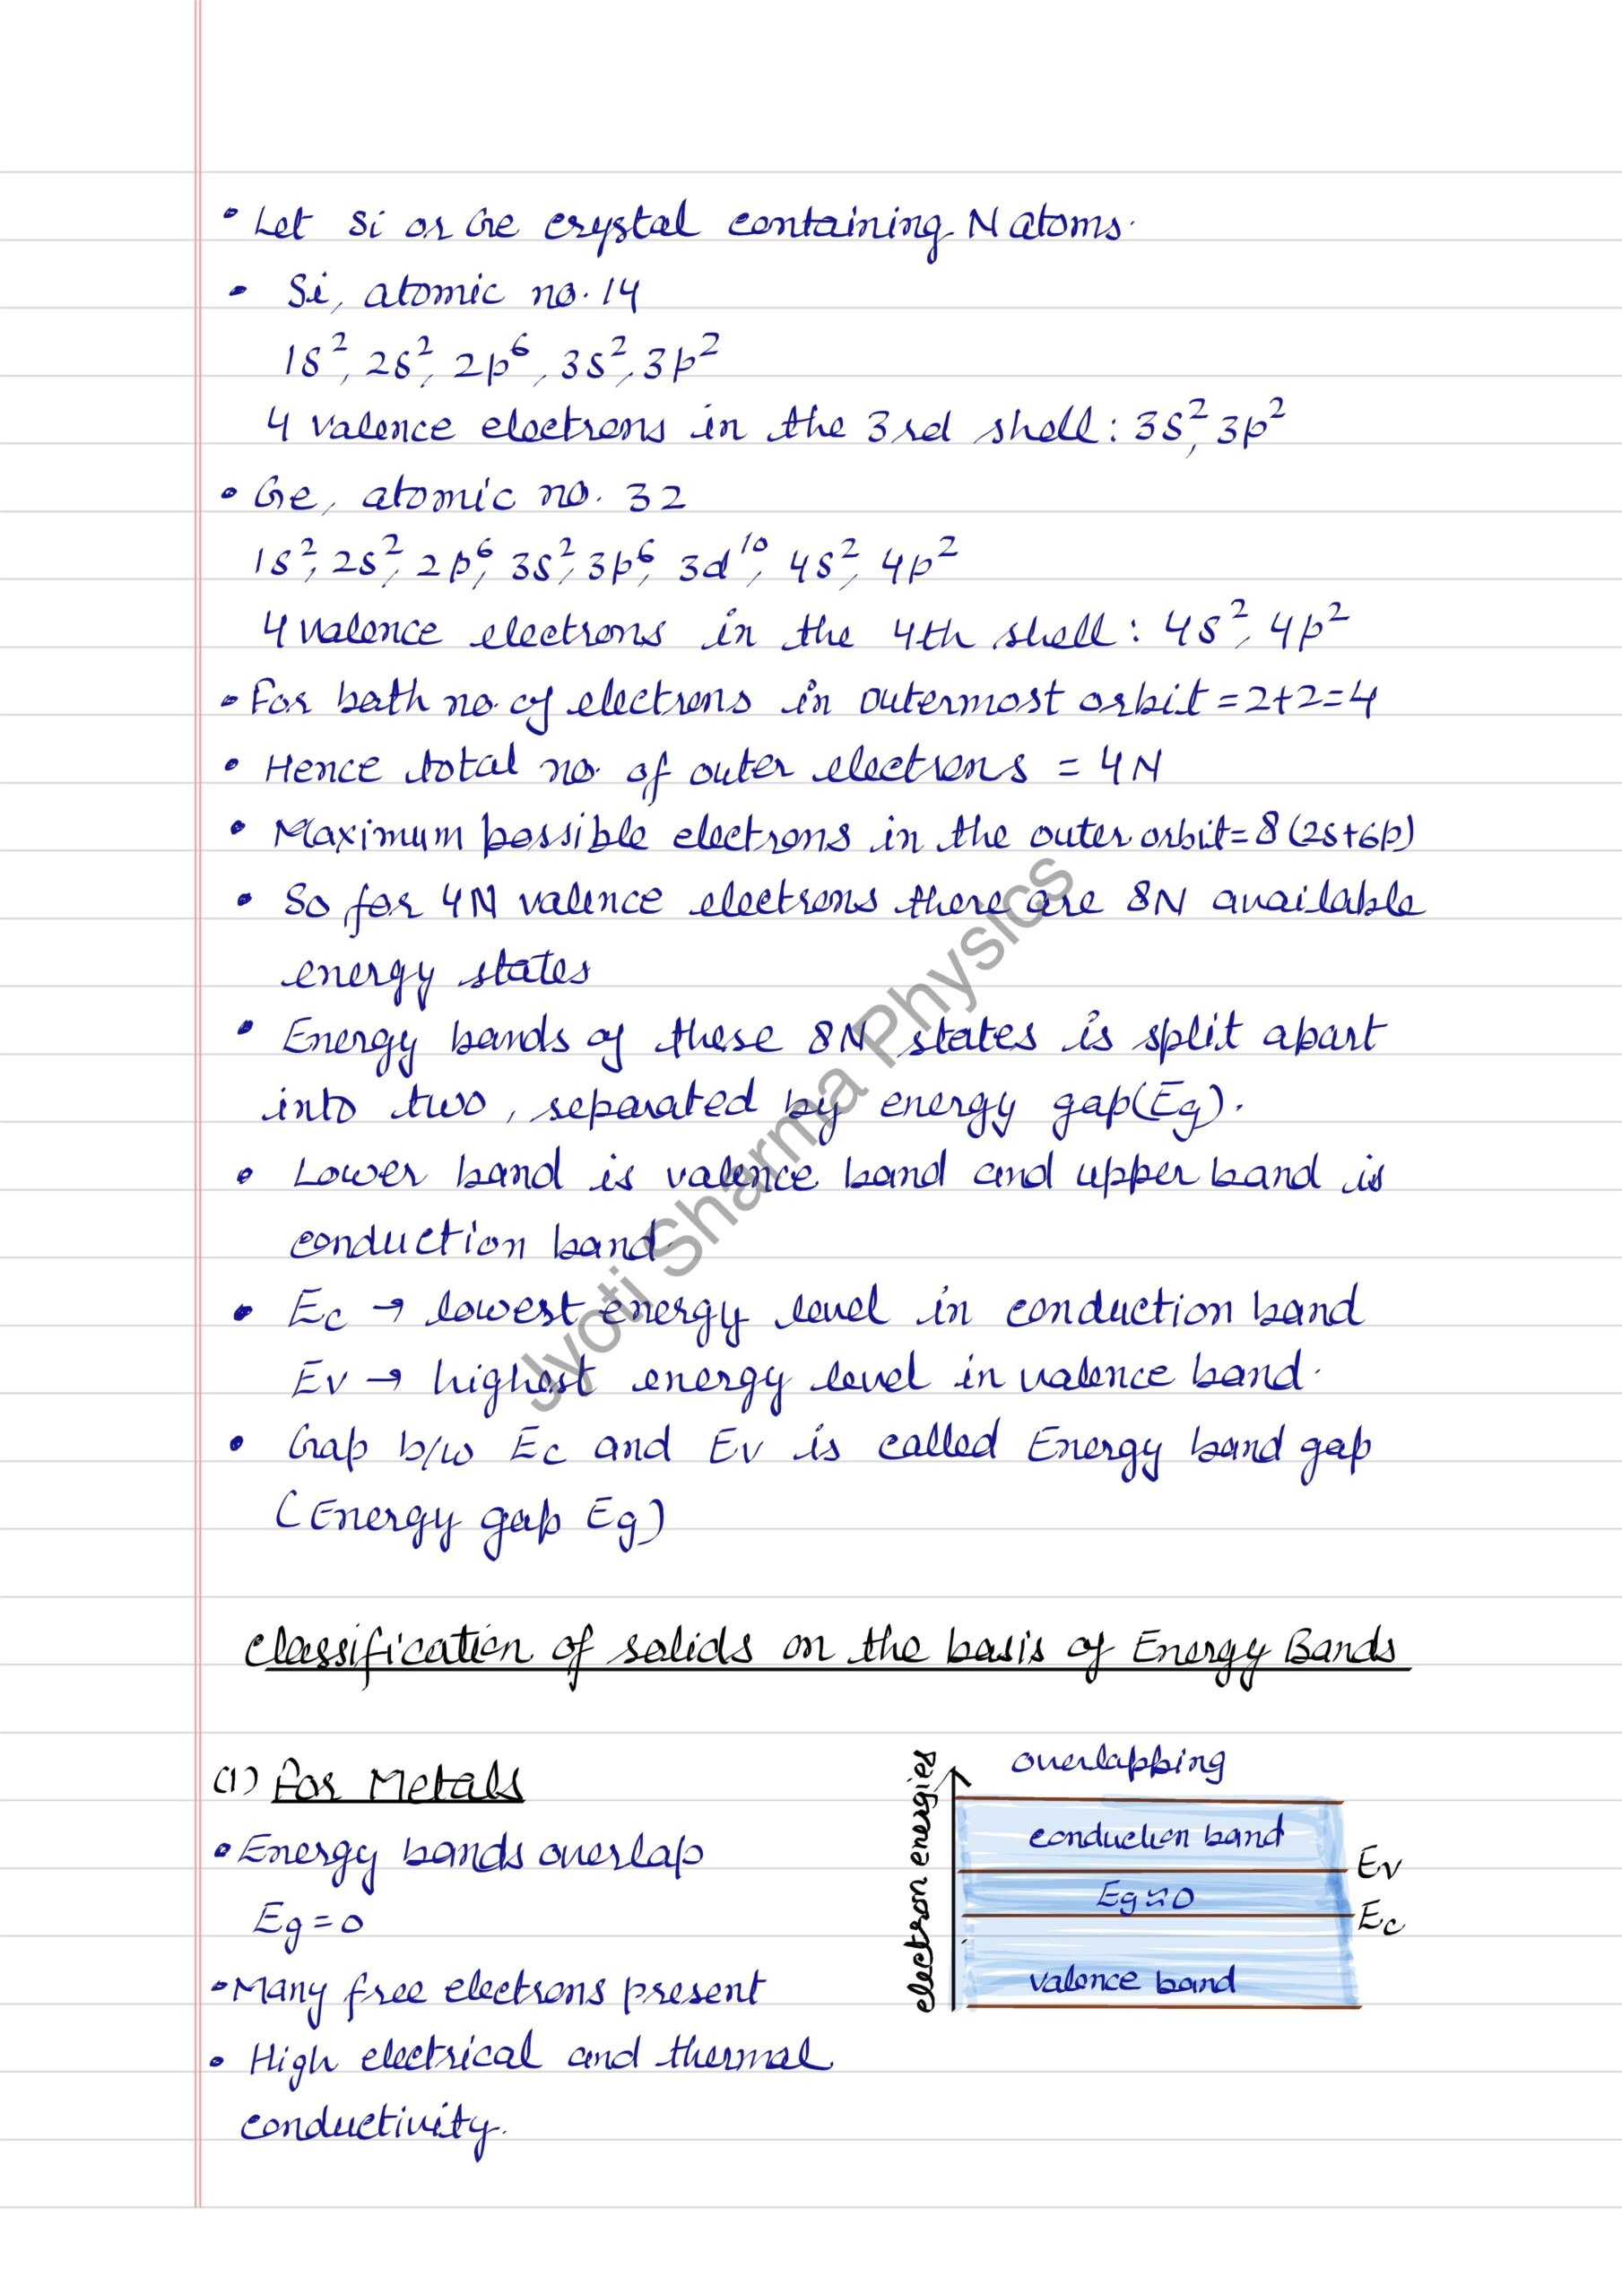 • Let Si or Ge crystal containing N atoms.
• Si, atomic no. 14
1s², 2s², 2p⁶, 3s², 3p²
4 valence electrons in the 3rd shell: 3s², 3p²
• Ge, atomic no. 32
1s², 2s², 2p⁶, 3s², 3p⁶, 3d¹⁰, 4s², 4p²
4 valence electrons in the 4th shell: 4s², 4p²
• For both no. of electrons in outermost orbit = 2+2=4
• Hence total no. of outer electrons = 4N
• Maximum possible electrons in the outer orbit=8 (2s+6p)
• So for 4N valence electrons there are 8N available
energy states
• Energy bands of these 8N states is split apart
into two, separated by energy gap(Eg).
• Lower band is valence band and upper band is
conduction band.
• Ec → lowest energy level in conduction band
Ev → highest energy level in valence band.
• Gap b/w Ec and Ev is called Energy band gap
(Energy gap Eg)
Jyoti Sharma Physics
Classification of solids on the basis of Energy Bands
(1) For Metals
• Energy bands overlap
Eg = 0
• Many free electrons present
• High electrical and thermal
conductivity.
electron energies
overlapping
conduction band
Ev
Eg≈0
Ec
valence band